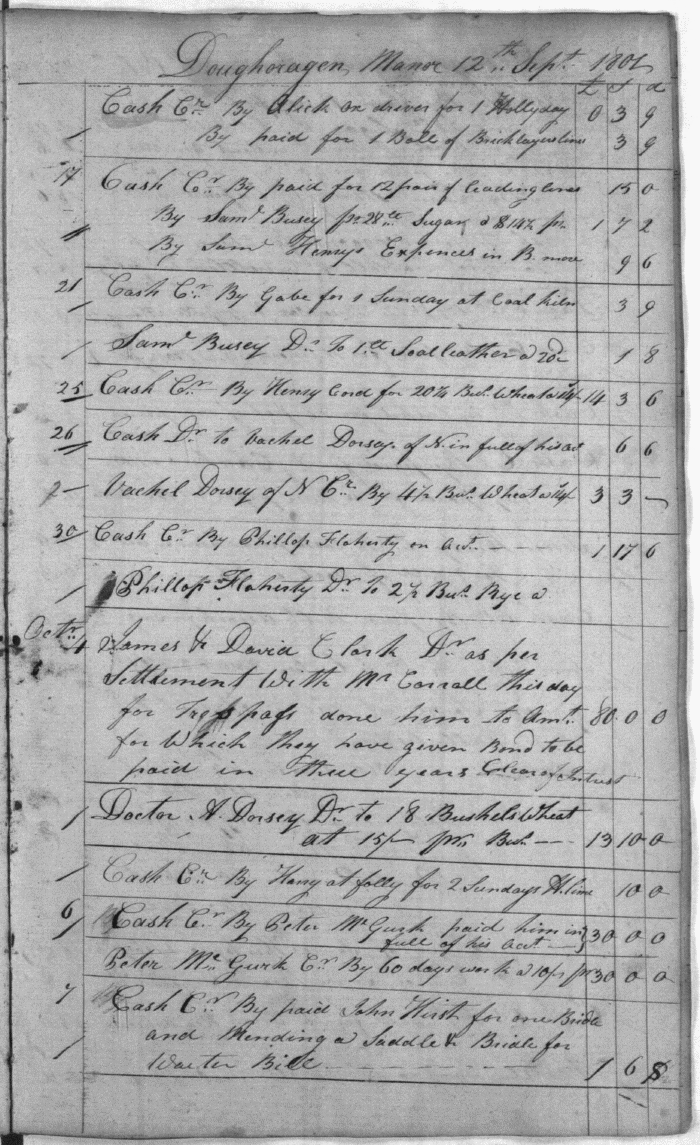 Doughoragen Manor 12th Sept. 1801
£ s d
Cash Cr. By Alick ox driver for 1 Hollyday 0 3 9
/ By paid for 1 Ball of Bricklayers line 3 9
17 Cash Cr. By paid for 12 pair of leading lines 15 0
By Saml. Busey pr 28 lb Sugar 1 7 2
By Saml. Henrys Expences in B. more 9 6
21 Cash Cr. By Gabe for 1 Sunday at Coal kiln 3 9
/ Saml Busey Dr. To 1 lb Soalleather a 20d 1 8
25 Cash Cr. By Henry Cord for 20¼ Bus. Wheat a 14/ 14 3 6
26 Cash Dr to Vachel Dorsey of N. in full of his act 6 6
Vachel Dorsey of N Cr. By 4½ Bus. Wheat a 14/ 3 3 —
30 Cash Cr. By Phillop Flaherty on Act. 1 17 6
/ Phillop Flaherty Dr To 2½ Bus. Rye a
Octr. 4 James & David Clark Dr as per
Settlement With Mr Carrall this day
for Tresspass done him to Amt. 80 0 0
for Which they have given Bond to be
paid in three years Clear of Intrust
/ Doctor A. Dorsey Dr to 18 Bushels Wheat
at 15/– pr Bus. — 13 10 0
/ Cash Cr. By Harry at folly for 2 Sundays 10 0
6 Cash Cr By Peter Mc Gurk paid him in } 30 0 0
full of his Act
/ Peter Mc Gurk Cr By 60 days work a 10/ pr 30 0 0
7 Cash Cr By paid John Hirst for one Bridle
and Mending a Saddle & Bridle for
/ Waeter Bill 1 6 8